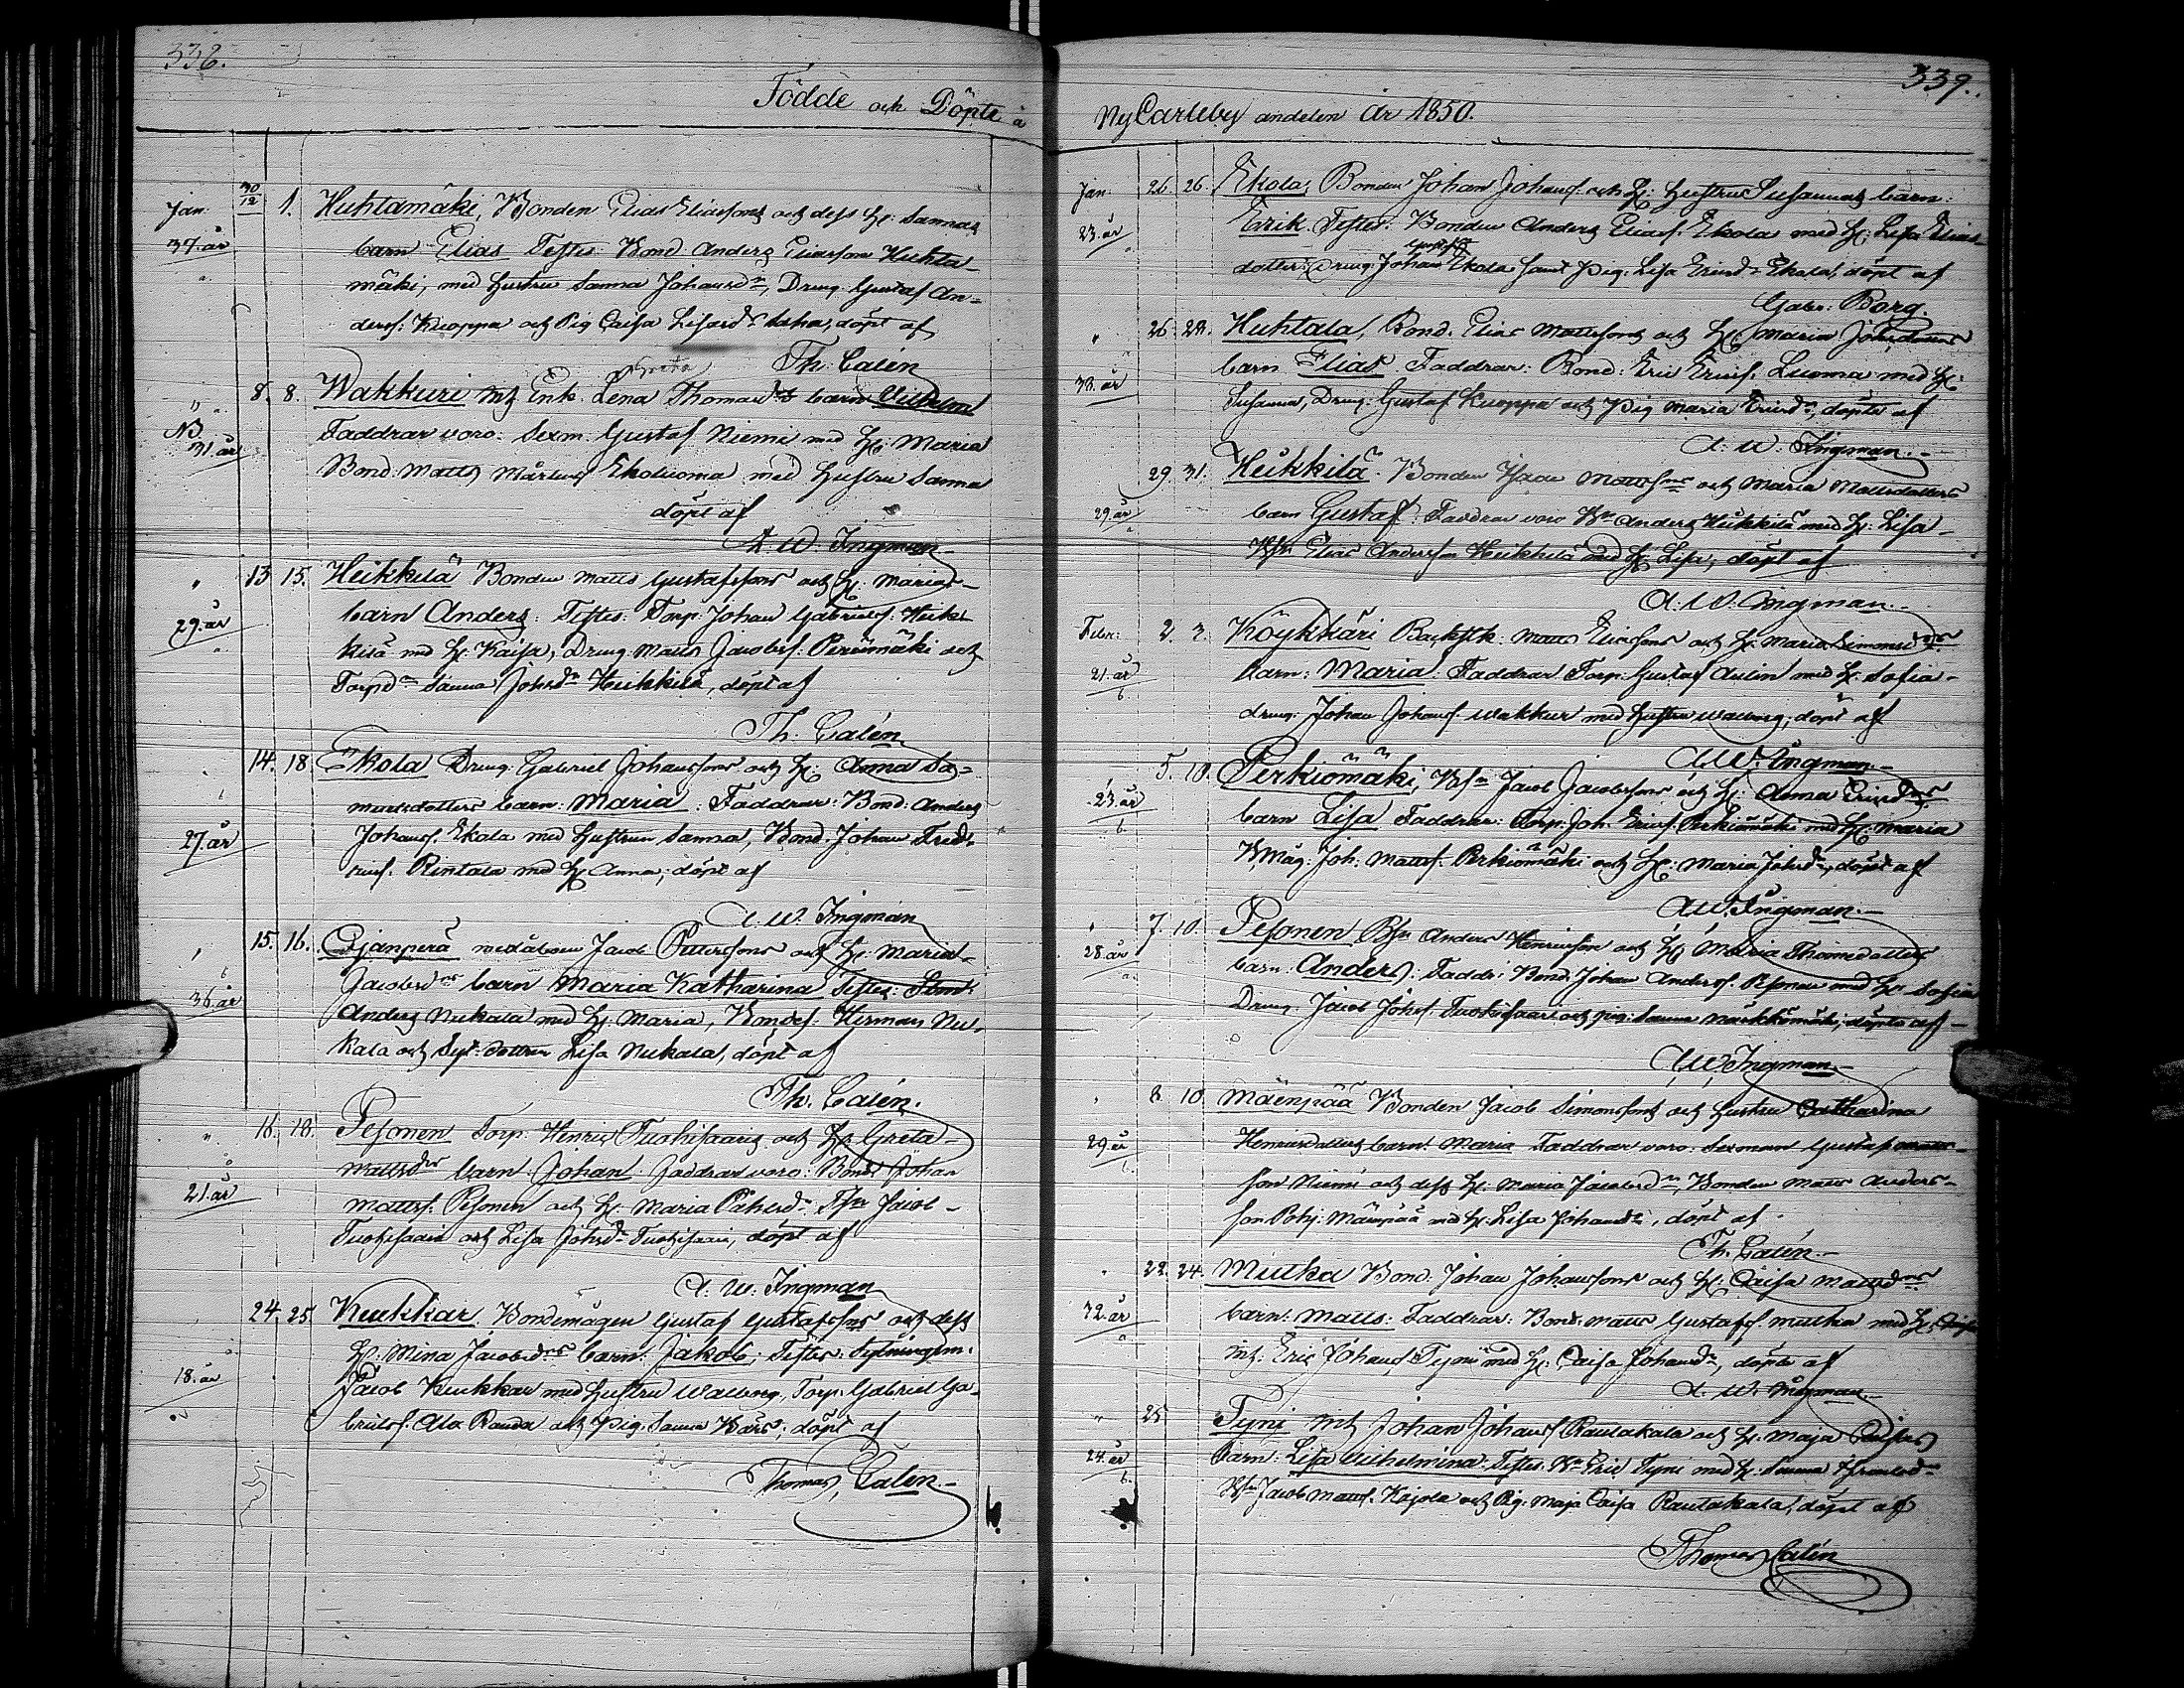 338.
Födde och Döpte å
Jan: 30/12 1. Huhtamäki, Bonden Elias Eliassons och dess H: Sannas
37. år barn Elias Testes: Bond. Anders Eliasson Huhta-
mäki, med Hustru Sanna Johansdr, Dreng Gustaf An-
derss: Kuoppa och Pig Caisa döpt af
Th. Calén
Greta
8. 8. Wakkuri Enk. Lena Thomasds barn Vilhelm
NB 31. år Faddrar voro: Sexm. Gustaf Niemi med H: Maria
Bond. Matts Mårtens Ekoluoma med Hustru Sanna
döpt af
A. W. Ingman
" 13. 15. Heikkilä Bonden Matts Gustafssons och H: Marias
29. år barn Anders: Testes: Torp. Johan Gabrielss. Heik-
kilä med H: Kaisa, Dreng Matts Jacobss. Perkiömäki och
Torpd. Sanna Johsdr Heikkilä, döpt af
Th. Calén
14. 18 Ekola Dreng Gabriel Johanssons och H: Anna Sa-
muelsdotters barn: Maria: Faddrar: Bond: Anders
27. år Johanss. Ekola med Hustrun Sanna, Bond. Johan Fred-
rikss. Rintala med H: Anna, döpt af
A. W. Ingman
15. 16. Ojanperä Jacob Petterssons och H: Maria
36. år Jacobsdrs barn Maria Katharina Testes:
Anders Nukala med H: Maria, Bondes: Herman Nu-
kala och Syt: dottren Lisa Nukala, döpt af
Th. Calén.
" 16. 18. Pesonen Torp. Henric Tuohisaaris och H: Greta
21. år Mattsdrs barn: Johan Faddrar voro: Bond. Johan
Mattss. Pesonen och H: Maria Jacob
Tuohisaari och Lisa Johsdr Tuohisaari, döpt af
A. W. Ingman
24. 25. Kukkar. Bondemågen Gustaf Gustafssons och dess
H: Mina Jacobsdrs barn: Jakob; Testes: Sytningsm.
18. år Jacob Kukkar med Hustru Walborg, Torp. Gabriel Ga-
brielss. Ala Ranta och Pig. Sanna döpt af
Thomas Calén
339.
NyCarleby andelen år 1850.
Jan: 26. 26. Ekola, Bonden Johan Johanss. och H: Hustru Susannas barn:
23. år Erik. Testes: Bonden Anders Eliass. Ekola med H: Lisa Elias-
dotter; Dreng Johan Ekola samt Pig: Lisa Ericsdr Ekola, döpt af
Gabr: Borg.
" 26. 28. Huhtala, Bond. Elias Mattssons och H: Maria Johsdotters
33. år barn Elias. Faddrar: Bond: Eric Ericss. Luoma med H:
Susanna, Dreng: Gustaf Kuoppa och Pig Maria Ericsdr, döpte af
A. W. Ingman.
29. 31. Heikkilä. Bonden Isaac Mattssons och Maria Mattsdotters
29. år barn Gustaf: Faddrar voro Bn Anders Heikkilä med H: Lisa
Bn Elias Andersson Heikkilä med H: Lisa, döpt af
A. W. Ingman.
Febr: 2. 3. Köykkäri Backstk: Matts Ericssons och H: Maria Simonsdrs
21. år barn: Maria: Faddrar Torp: Gustaf Aulin med H: Sofia
dreng: Johan Johanss. Wakkur med Hustru Walborg, döpt af
A. W. Ingman
5. 10. Perkiömäki, Bn Jacob Jacobssons och H: Anna Ericsdrs
23. år barn Lisa Faddrar: Torp. Joh. Ericss. Perkiömäki med H: Maria
Bmåg: Joh: Mattss. Perkiömäki och H: Maria Johsdr, döpt af
A. W. Ingman
7. 10. Pesonen Bn Anders Henricsson och H: Maria Thomasdotters
28. år barn: Anders: Fadd: Bond. Johan Anderss. Pesonen med H: Sofia
Dreng Jacob Johss. Tuohisaari och pig: Sanna döpte af
A. W. Ingman
8. 10. Mäenpää Bonden Jacob Simonssons och Hustru Catharina
29. år Henricsdotters barn: Maria Faddrar voro: Sexman Gustaf Matts-
son Niemi och dess H: Maria Jacobsdr, Bonden Matts Anders-
son Pohj. Mäenpää med H: Lisa Johansdr, döpt af
Th. Calén.
22. 24. Mutka Bond. Johan Johanssons och H: Caisa Mattsdrs
32. år barn: Matts: Faddrar: Bond: Matts Gustafss. Mutka med H: Caisa
Eric Johanss. Tyni med H: Caisa Johansdr, döpte af
A. W. Ingman
" 25. Tyni Johan Johanss. Rautakala och H: Maja Caisas
24. år barn: Lisa Wilhelmina: Testes: Bn Eric Tyni med H: Sanna
Bn Jacob Mattss. Kajola och Pig. Maja Caisa Rautakala, döpt af
Thomas Calén